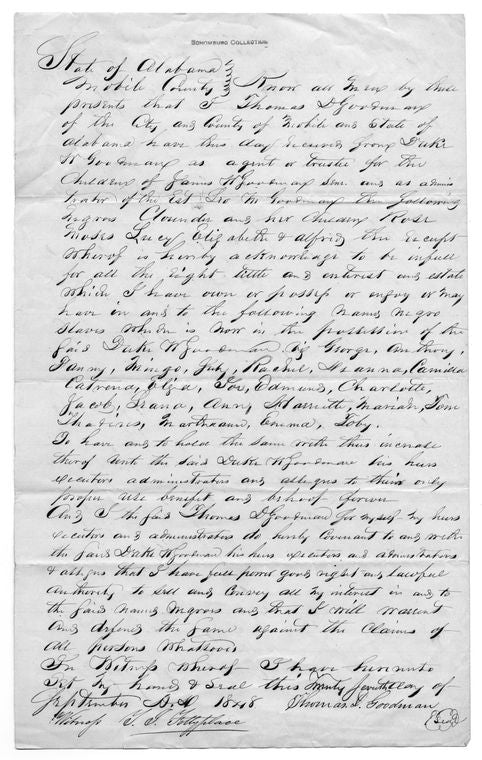 SCHOMBURG COLLECTION
State of Alabama
Mobile County Know all Men by these
presents that I Thomas D Goodman
of the City and County of Mobile and State of
Alabama have this day received from Duke
W Goodman as agent or trustee for the
Children of James W Goodman Senr and as adminis
trator of the Est the following
negros and her Children Rose
Moses Lucy Elizabeth & alfred the receipt
Wherof is hereby acknowledge to be in full
for all the right title and interest and estate
Which I have own or possess or enjoy or may
have in and to the following named negro
Slaves Which is now in the possession of the
Said Duke W Goodman viz George, Anthony,
Fanny, Mingo, July, Rachel, Camilla
Catrena, Eliza, Joe, Edmund, Charlotte,
Jacob, Anny Harriette, Mariah, Tom
Emma, Toby.
To have and to hold the Same with thus increase
therof unto the said Duke W Goodman his heirs
executors administrators and assigns to their only
proper Use benefit and behoof forever
And I the said Thomas D Goodman for myself my heirs
executors and administrators do hereby Covenant to and with
the Said Duke W Goodman his heirs executors and administrators
& assigns that I have full power good right and lawful
Authority to Sell and Convey all my interest in and to
the Said named negros and that I will warrant
and defend the Same against the Claims of
all persons Whatsoever
In Witness Wherof I have hereunto
Set my hand & Seal this Twenty day of
September A.D 1848 Thomas D. Goodman
Witness Fettyplace Seal